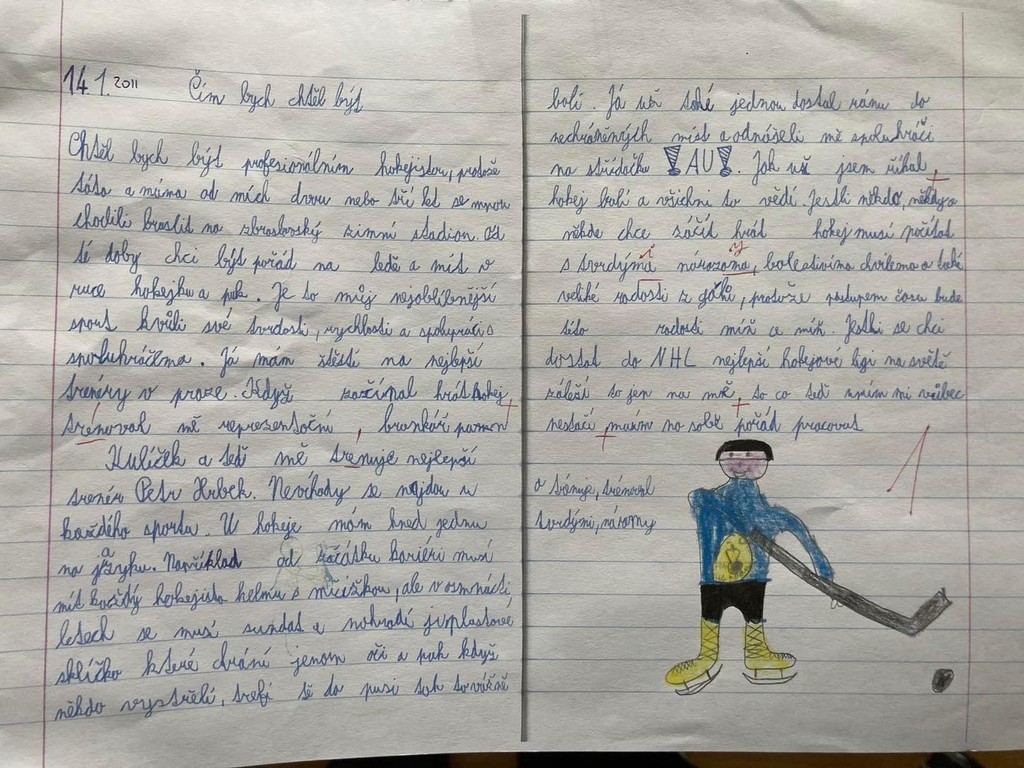 14.1. 2011 Čím bych chtěl být
Chtěl bych být profesionálním hokejistou, protože
táta a máma od mích dvou nebo tří let se mnou
chodili bruslit na zbraslavský zimní stadion. Od
té doby chci být pořád na ledě a mít v
ruce hokejku a puk. Je to můj nejoblíbenější
sport kvůli své tvrdosti, rychlosti a spolupráci s
spoluhráčema. Já mám štěstí na nejlepší
trenéry v praze. Když začínal hrát hokej
trénoval mě reprezentační brankář paman
Kulíček a teď mě trenuje nejlepší
trenér Petr Hrbek. Nevíhody se najdou u
každého sportu. U hokeje mám hned jednu
na jazyku. Například od začátku kariéri musí
mít každý hokejista helmu s mřížkou, ale v osmnácti
letech se musí sundat a nahradí jí plastové
sklíčko které chrání jenom oči a pak když
někdo vystřelí, trefí tě do pusi tak to vážně
bolí. Já už také jednou dostal ránu do
nechráněných míst a odnášeli mě spoluhráči
na střídačku !AU!. Jak už jsem říkal,
hokej bolí a všichni to vědí. Jestli někdo, někdy a
někde chce začít hrát hokej musí počítat
s tvrdýma nárazama, bolestivíma chvílema a také
veliké radosti z gólů, protože postupem času bude
této radosti míň a míň. Jestli se chci
dostat do NHL nejlepší hokejové ligi na světě
záleží to jen na mě, to co teď umím mi vůbec
nestačí, musím na sobě pořád pracovat
a trénuje, trénoval
tvrdými, nárazy
1